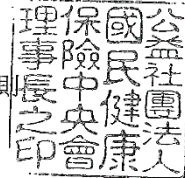 公益社團法人
國民健康
保險中央會
理事長之印
則